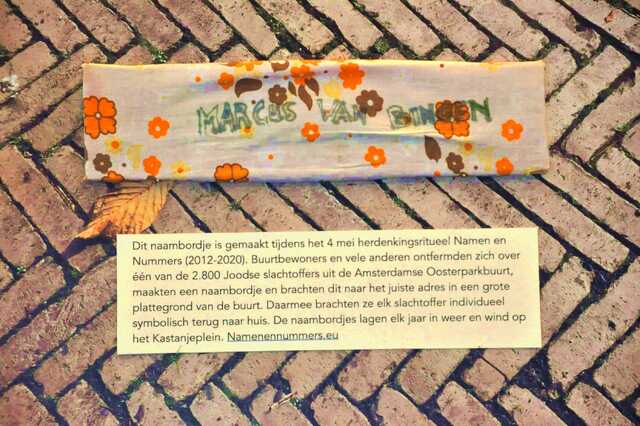 MARCUS VAN BINGEN
Dit naambordje is gemaakt tijdens het 4 mei herdenkingsritueel Namen en
Nummers (2012-2020). Buurtbewoners en vele anderen ontfermden zich over
één van de 2.800 Joodse slachtoffers uit de Amsterdamse Oosterparkbuurt,
maakten een naambordje en brachten dit naar het juiste adres in een grote
plattegrond van de buurt. Daarmee brachten ze elk slachtoffer individueel
symbolisch terug naar huis. De naambordjes lagen elk jaar in weer en wind op
het Kastanjeplein. Namenennummers.eu